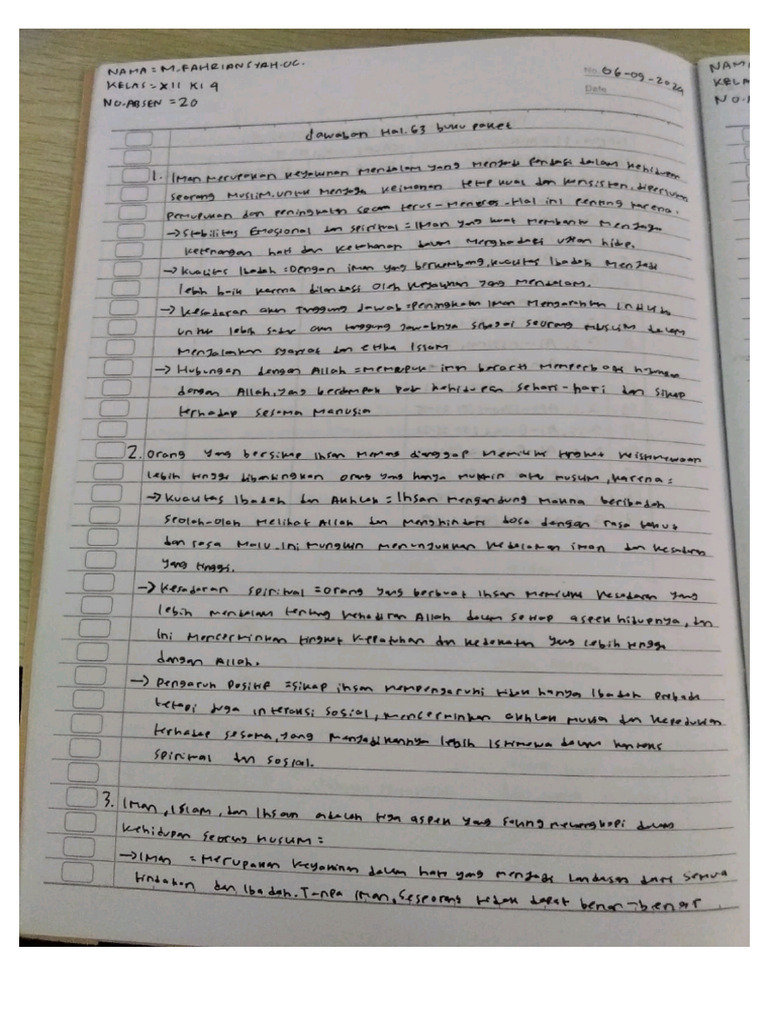 NAMA = M. FAHRIANSYAH.UC.
KELAS = XII KI 4
NO. ABSEN = 20
No. 06-09-2024
Date
NAMA
KELA
NO.A
Jawaban Hal. 63 buku paket
1. Iman merupakan keyakinan mendalam yang menjadi pondasi dalam kehidupan
seorang Muslim. untuk menjaga keimanan tetap kuat dan konsisten, diperlukan
pemupukan dan peningkatan secara terus-menerus. Hal ini penting karena.
→ Stabilitas Emosional dan spiritual = Iman yang kuat membantu menjaga
ketenangan hati dan ketahanan dalam menghadapi ujian hidup.
→ Kualitas Ibadah = Dengan iman yang berkembang, kualitas Ibadah menjadi
lebih baik karena dilandasi oleh keyakinan yang mendalam.
→ Kesadaran akan Tanggung Jawab = peningkatan Iman mengarahkan individu
untuk lebih sadar akan tanggung jawabnya sebagai seorang muslim dalam
menjalankan syariat dan etika Islam
→ Hubungan dengan Allah = memupuk iman berarti memperbaiki hubungan
dengan Allah, yang berdampak pada kehidupan sehari-hari dan sikap
terhadap sesama manusia
2. Orang yang bersikap Ihsan memang dianggap memiliki tingkat keistimewaan
lebih tinggi dibandingkan orang yang hanya mukmin atau muslim, karena =
→ Kualitas Ibadah dan Akhlak = Ihsan mengandung makna beribadah
seolah-olah melihat Allah dan menghindari dosa dengan rasa takut
dan rasa malu. Ini menunjukkan kedalaman iman dan kesadaran
yang tinggi.
→ Kesadaran spiritual = orang yang berbuat Ihsan memiliki kesadaran yang
lebih mendalam tentang kehadiran Allah dalam setiap aspek hidupnya, dan
Ini mencerminkan tingkat kepatuhan dan kedekatan yang lebih tinggi
dengan Allah.
→ Pengaruh Positif = sikap ihsan mempengaruhi tidak hanya Ibadah pribadi
tetapi juga interaksi sosial, mencerminkan akhlak mulia dan kepedulian
terhadap sesama, yang menjadikannya lebih istimewa dalam konteks
spiritual dan sosial.
3. Iman, Islam, dan Ihsan adalah tiga aspek yang saling melengkapi dalam
kehidupan seorang muslim =
→ Iman = Merupakan keyakinan dalam hati yang menjadi landasan dari semua
tindakan dan Ibadah. Tanpa iman, seseorang tidak dapat benar-benar